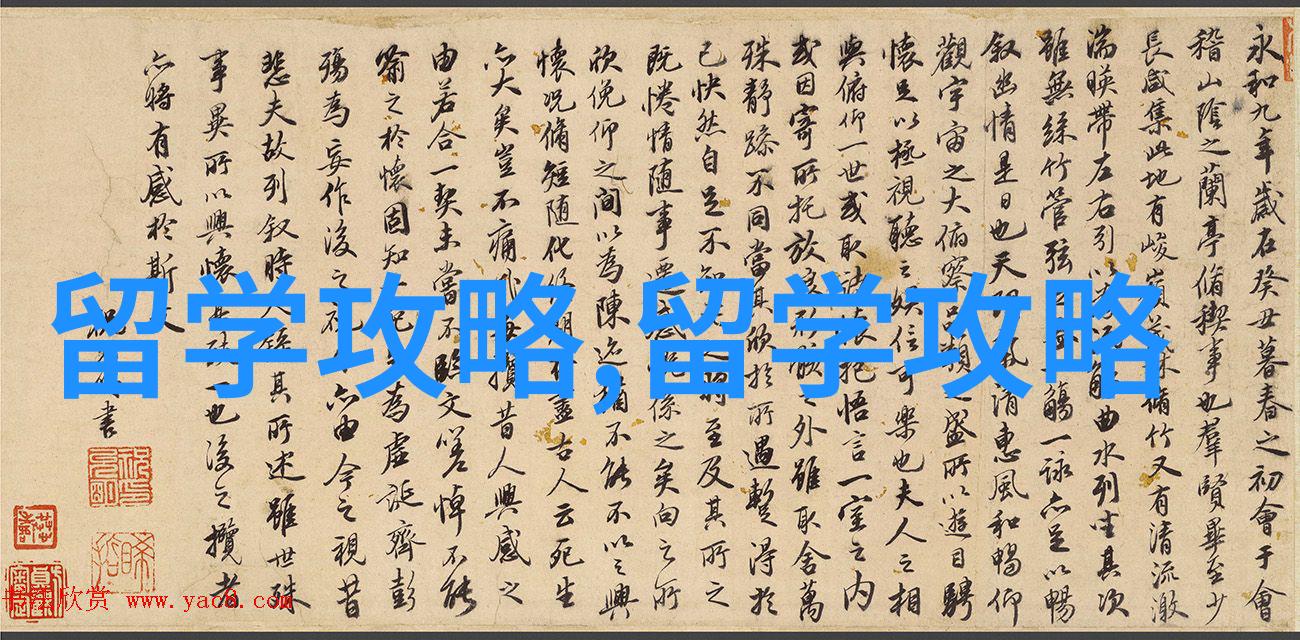 永和九年歲在癸丑暮春之初會于會
稽山陰之蘭亭脩稧事也羣賢畢至少
長咸集此地有峻嶺茂林脩竹又有清流激
湍暎帶左右引以為觴曲水列坐其次
雖無絲竹管弦之觴一詠亦足以暢
叙幽情是日也天風清惠風和暢仰
觀宇宙之大俯察品類之盛所以遊目騁
懷足以極視聽之娛信可樂也夫人之相
與俯仰一世或取諸懷抱悟言一室之內
或因寄所托放浪形骸之外雖取舍萬
殊靜躁不同當其欣於所遇暫得於
己快然自足不知將至及其所之
既惓情随事遷感慨係之矣向之所
欣俛仰之間以為陳迹猶不能不以之興
懷况脩短随化終期盡古人云死生
亦大矣豈不痛哉每攬昔人興感之
由若合一契未嘗不臨文嗟悼不能
喻之於懷固知一死為虛誕齊彭
殤為妄作後之視今亦由今之視昔
悲夫故列叙時人錄其所述雖世殊
事異所以興懷其致一也後之攬者
亦將有感於斯文
書
留学攻略,留学攻略
欣赏 www.yac8.com